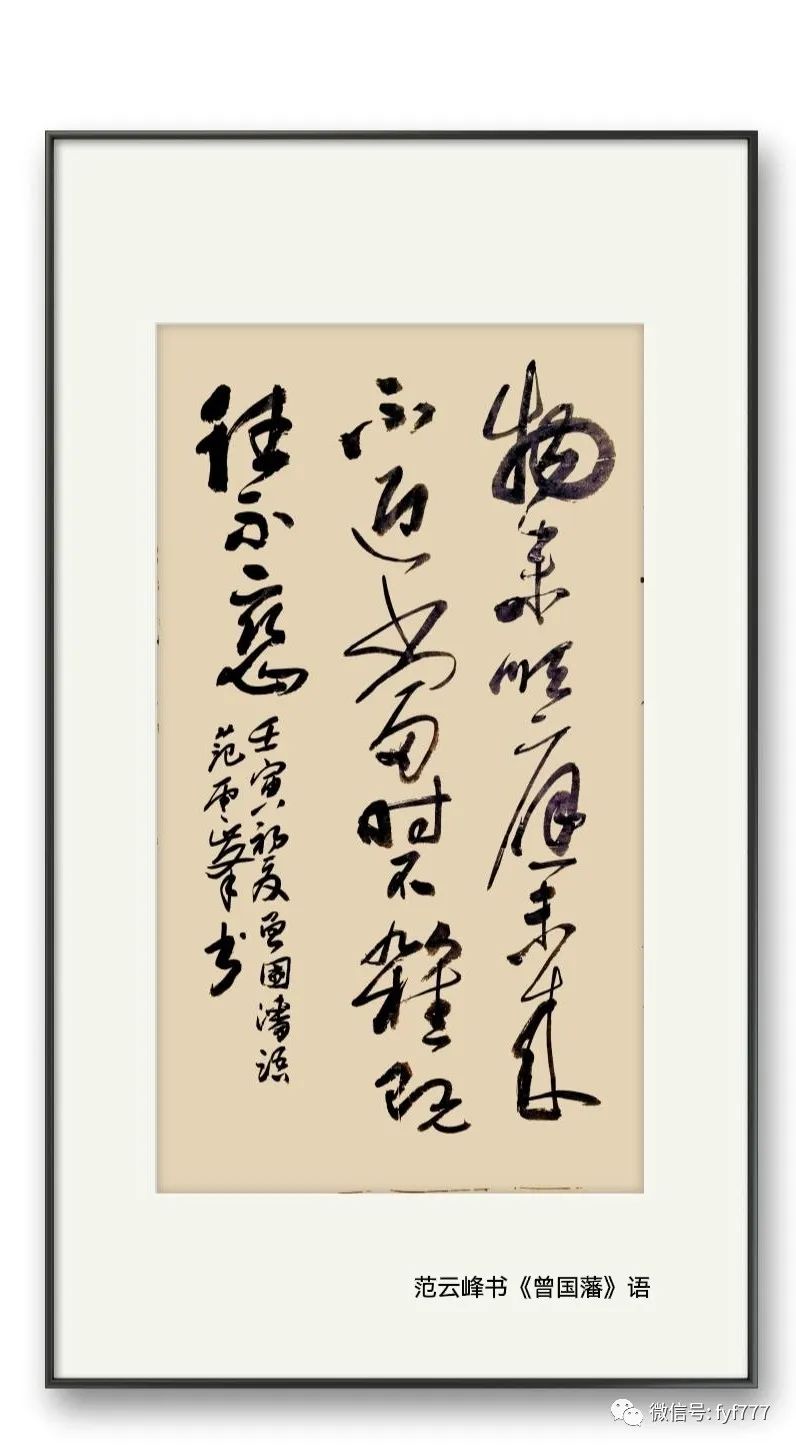 物来順應未来
不迎當时不雜既
往不恋
壬寅初夏曾國藩語
范雲峯书
范云峰书《曾国藩》语
微信号: fyf777